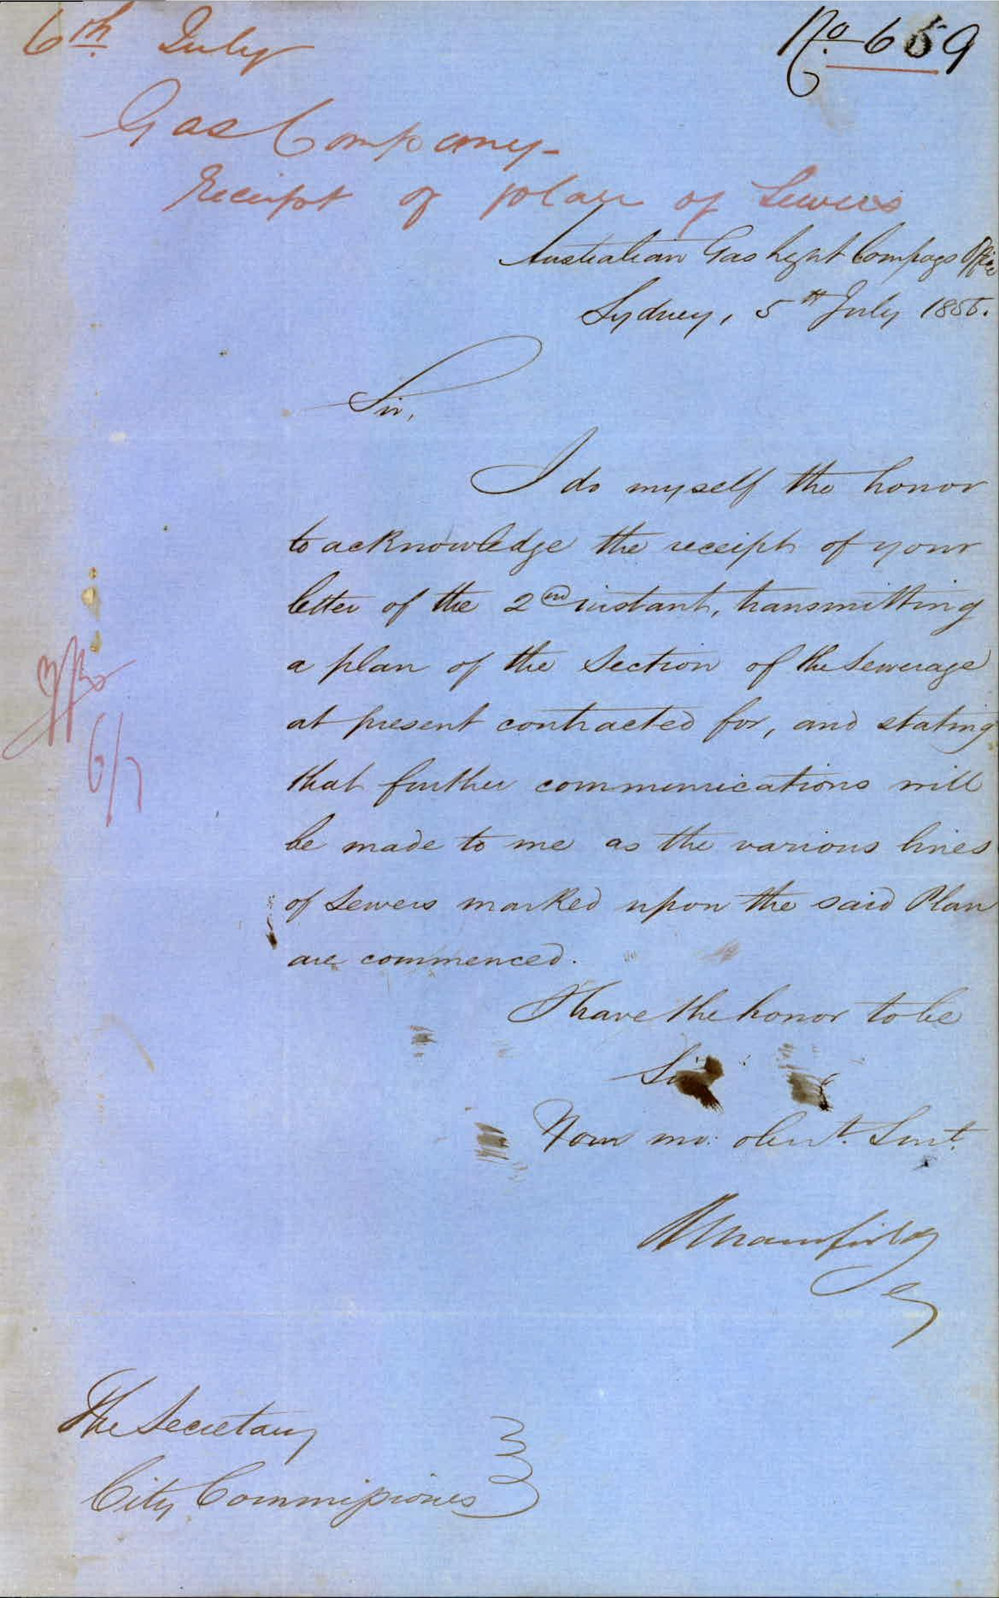 6th July
No 659
Gas Company -
Receipt of plan of Sewers
Australian Gas Light Compays Office
Sydney, 5th July 1855.
Sir,
I do myself the honor
to acknowledge the receipt of your
letter of the 2nd instant, transmitting
a plan of the Section of the Sewerage
at present contracted for, and stating
that further communications will
be made to me as the various lines
of Sewers marked upon the said Plan
are commenced.
6/7
I have the honor to be
Sir
Your mo: obent. Servt.
The Secretary
City Commissioners